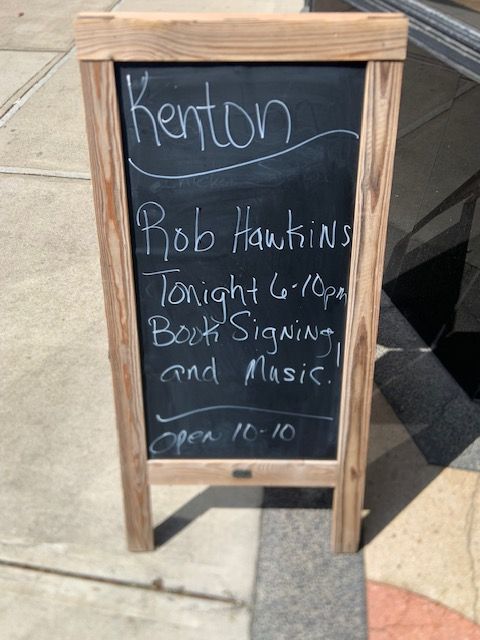 Kenton
Rob Hawkins
Tonight 6-10pm
Book Signing,
and Music.
Open 10-10